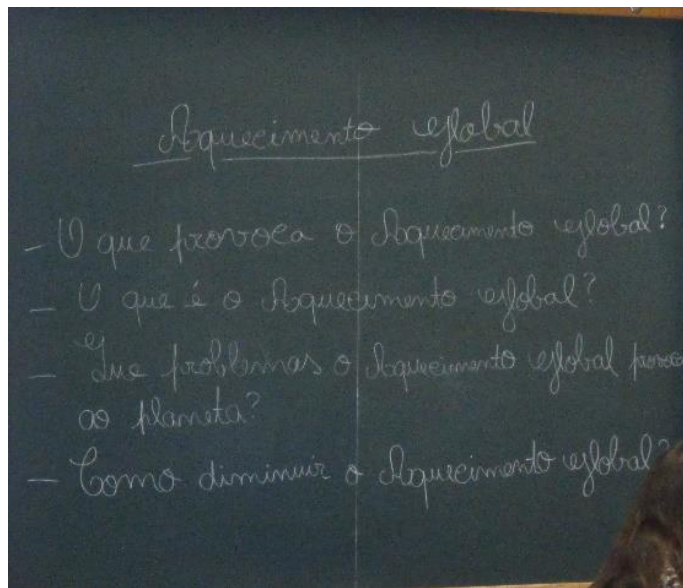 Aquecimento Global
- O que provoca o Aquecimento Global?
- O que é o Aquecimento Global?
- Que problemas o Aquecimento Global provoca
ao planeta?
- Como diminuir o Aquecimento Global?